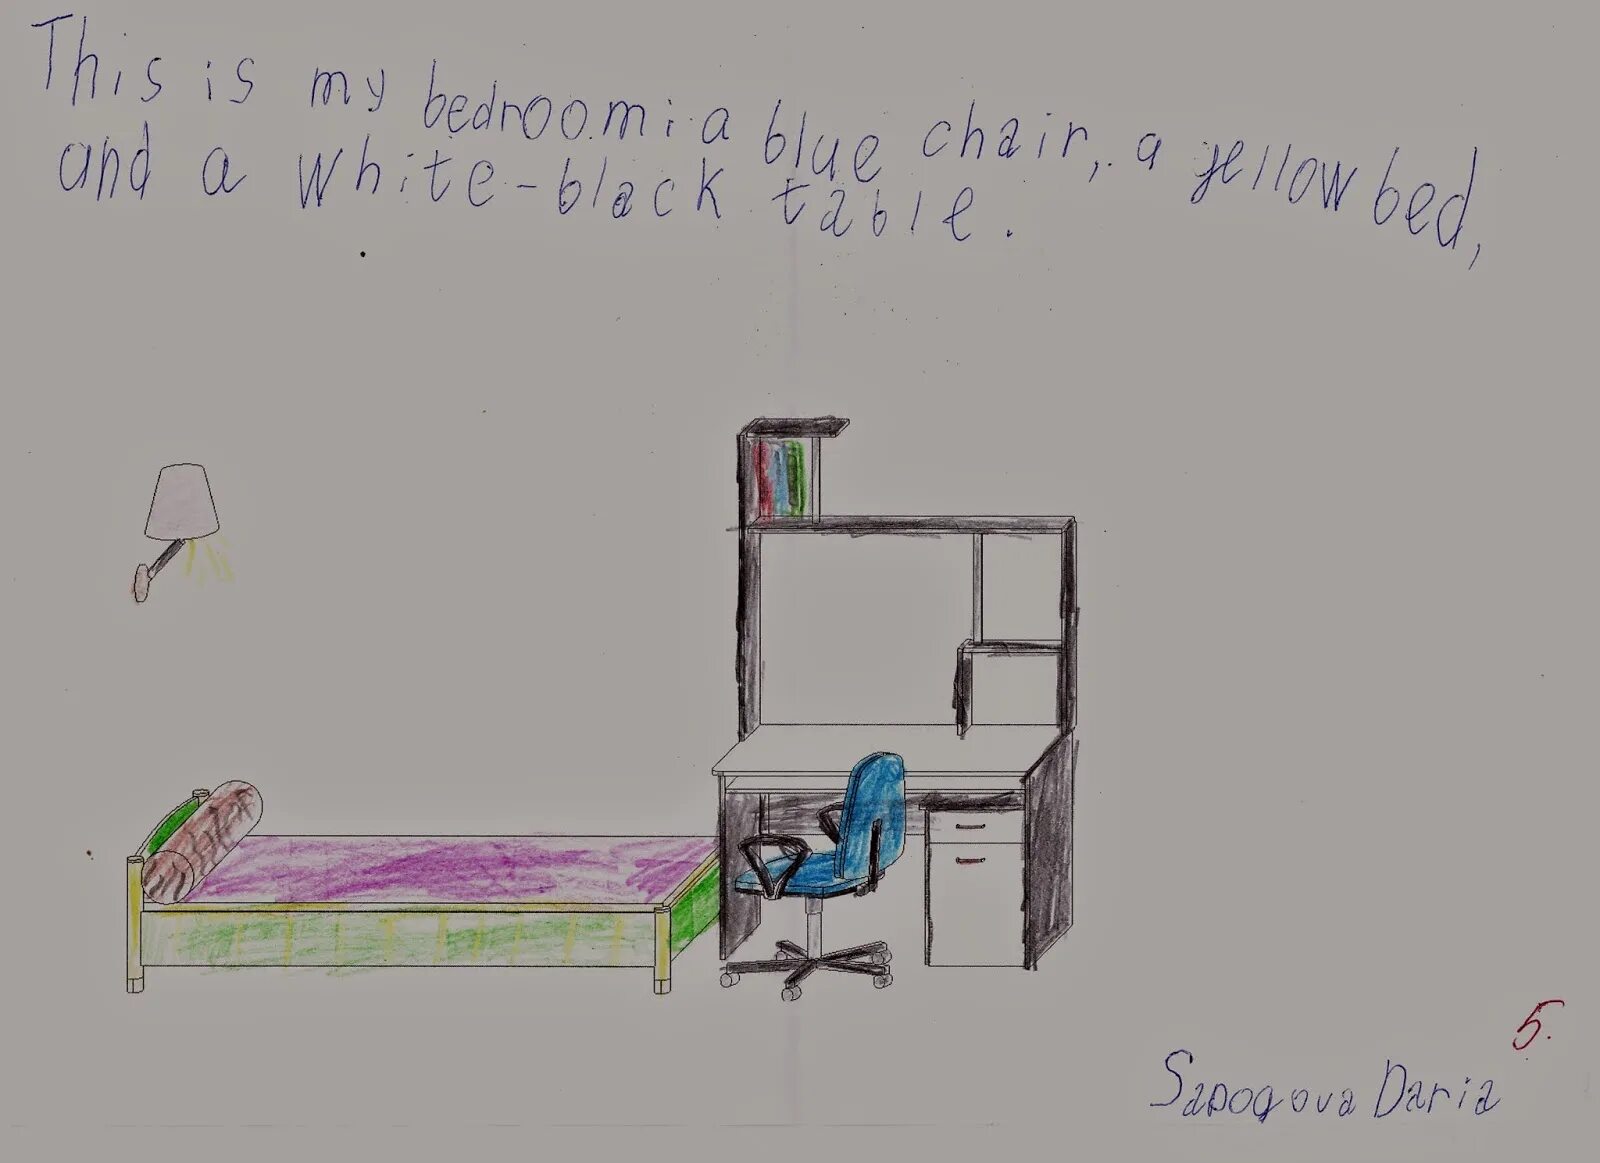 This is my bedroom: a blue chair, a yellow bed,
and a white-black table.
5.
Sapogova Daria